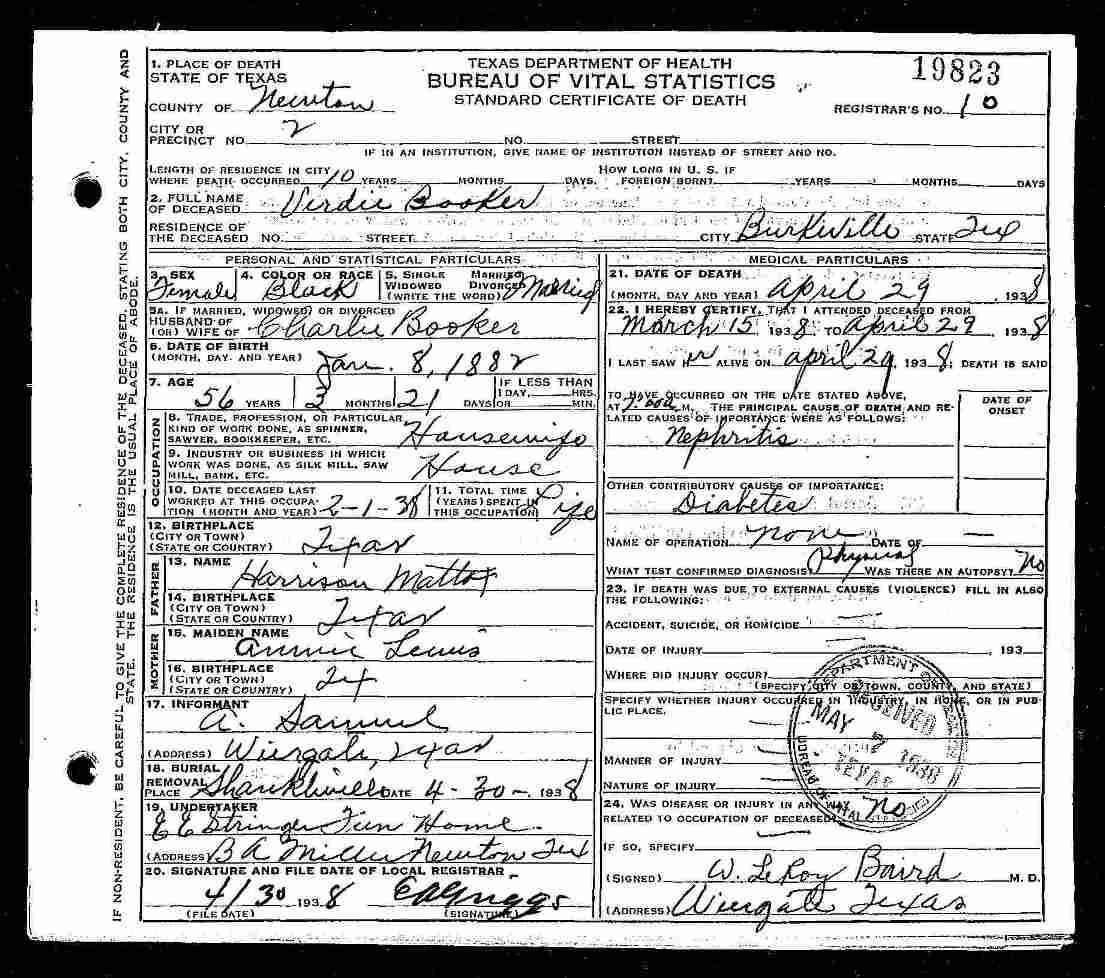 TEXAS DEPARTMENT OF HEALTH
BUREAU OF VITAL STATISTICS
STANDARD CERTIFICATE OF DEATH
19823
REGISTRAR'S NO. 10
1. PLACE OF DEATH
STATE OF TEXAS
COUNTY OF Newton
CITY OR
PRECINCT NO. 2 NO. STREET
IF IN AN INSTITUTION, GIVE NAME OF INSTITUTION INSTEAD OF STREET AND NO.
LENGTH OF RESIDENCE IN CITY
WHERE DEATH OCCURRED 10 YEARS MONTHS DAYS.
HOW LONG IN U. S. IF
FOREIGN BORN? YEARS MONTHS DAYS
2. FULL NAME
OF DECEASED Virdie Booker
RESIDENCE OF
THE DECEASED NO. STREET CITY Burkville STATE Tex
PERSONAL AND STATISTICAL PARTICULARS
3. SEX
Female
4. COLOR OR RACE
Black
5. SINGLE MARRIED
WIDOWED DIVORCED
(WRITE THE WORD) Married
5A. IF MARRIED, WIDOWED, OR DIVORCED
HUSBAND OF
(OR) WIFE OF Charlie Booker
6. DATE OF BIRTH
(MONTH, DAY, AND YEAR) Jan. 8, 1882
7. AGE
56 YEARS 3 MONTHS 21 DAYS
IF LESS THAN
1 DAY, HRS.
OR MIN.
OCCUPATION
8. TRADE, PROFESSION, OR PARTICULAR
KIND OF WORK DONE, AS SPINNER,
SAWYER, BOOKKEEPER, ETC. Housewife
9. INDUSTRY OR BUSINESS IN WHICH
WORK WAS DONE, AS SILK MILL, SAW
MILL, BANK, ETC. House
10. DATE DECEASED LAST
WORKED AT THIS OCCUPA-
TION (MONTH AND YEAR) 2-1-38
11. TOTAL TIME
(YEARS) SPENT IN
THIS OCCUPATION Life
12. BIRTHPLACE
(CITY OR TOWN)
(STATE OR COUNTRY) Texas
FATHER
13. NAME
Harrison Mattox
14. BIRTHPLACE
(CITY OR TOWN)
(STATE OR COUNTRY) Texas
MOTHER
15. MAIDEN NAME
Annie Lewis
16. BIRTHPLACE
(CITY OR TOWN)
(STATE OR COUNTRY) Tex
17. INFORMANT
A. Samuel
(ADDRESS) Wiergate, Texas
18. BURIAL
REMOVAL
PLACE Shankleville DATE 4-30- 1938
19. UNDERTAKER
E E Stringer Fun Home.
(ADDRESS) B A Miller Newton Tex
20. SIGNATURE AND FILE DATE OF LOCAL REGISTRAR
4/30 1938
(FILE DATE) (SIGNATURE)
MEDICAL PARTICULARS
21. DATE OF DEATH
(MONTH, DAY AND YEAR) April 29, 1938
22. I HEREBY CERTIFY, THAT I ATTENDED DECEASED FROM
March 15 1938 TO April 29 1938
I LAST SAW Her ALIVE ON April 29, 1938; DEATH IS SAID
TO HAVE OCCURRED ON THE DATE STATED ABOVE,
AT M. THE PRINCIPAL CAUSE OF DEATH AND RE-
LATED CAUSES OF IMPORTANCE WERE AS FOLLOWS:
DATE OF
ONSET
Nephritis
OTHER CONTRIBUTORY CAUSES OF IMPORTANCE:
Diabetes
NAME OF OPERATION None DATE OF —
WHAT TEST CONFIRMED DIAGNOSIS? Physical WAS THERE AN AUTOPSY? No
23. IF DEATH WAS DUE TO EXTERNAL CAUSES (VIOLENCE) FILL IN ALSO
THE FOLLOWING:
ACCIDENT, SUICIDE, OR HOMICIDE —
DATE OF INJURY , 193
WHERE DID INJURY OCCUR?
(SPECIFY CITY OR TOWN, COUNTY, AND STATE)
SPECIFY WHETHER INJURY OCCURRED IN INDUSTRY, IN HOME, OR IN PUB-
LIC PLACE.
MANNER OF INJURY
NATURE OF INJURY
24. WAS DISEASE OR INJURY IN ANY WAY
RELATED TO OCCUPATION OF DECEASED? No
IF SO, SPECIFY
(SIGNED) W. LeRoy Baird M. D.
(ADDRESS) Wiergate Texas
DEPARTMENT OF HEALTH
RECEIVED
MAY 7 1938
TEXAS
BUREAU OF VITAL STATISTICS
IF NON-RESIDENT, BE CAREFUL TO GIVE THE COMPLETE RESIDENCE OF THE DECEASED, STATING BOTH CITY, COUNTY AND
STATE. THE RESIDENCE IS THE USUAL PLACE OF ABODE.